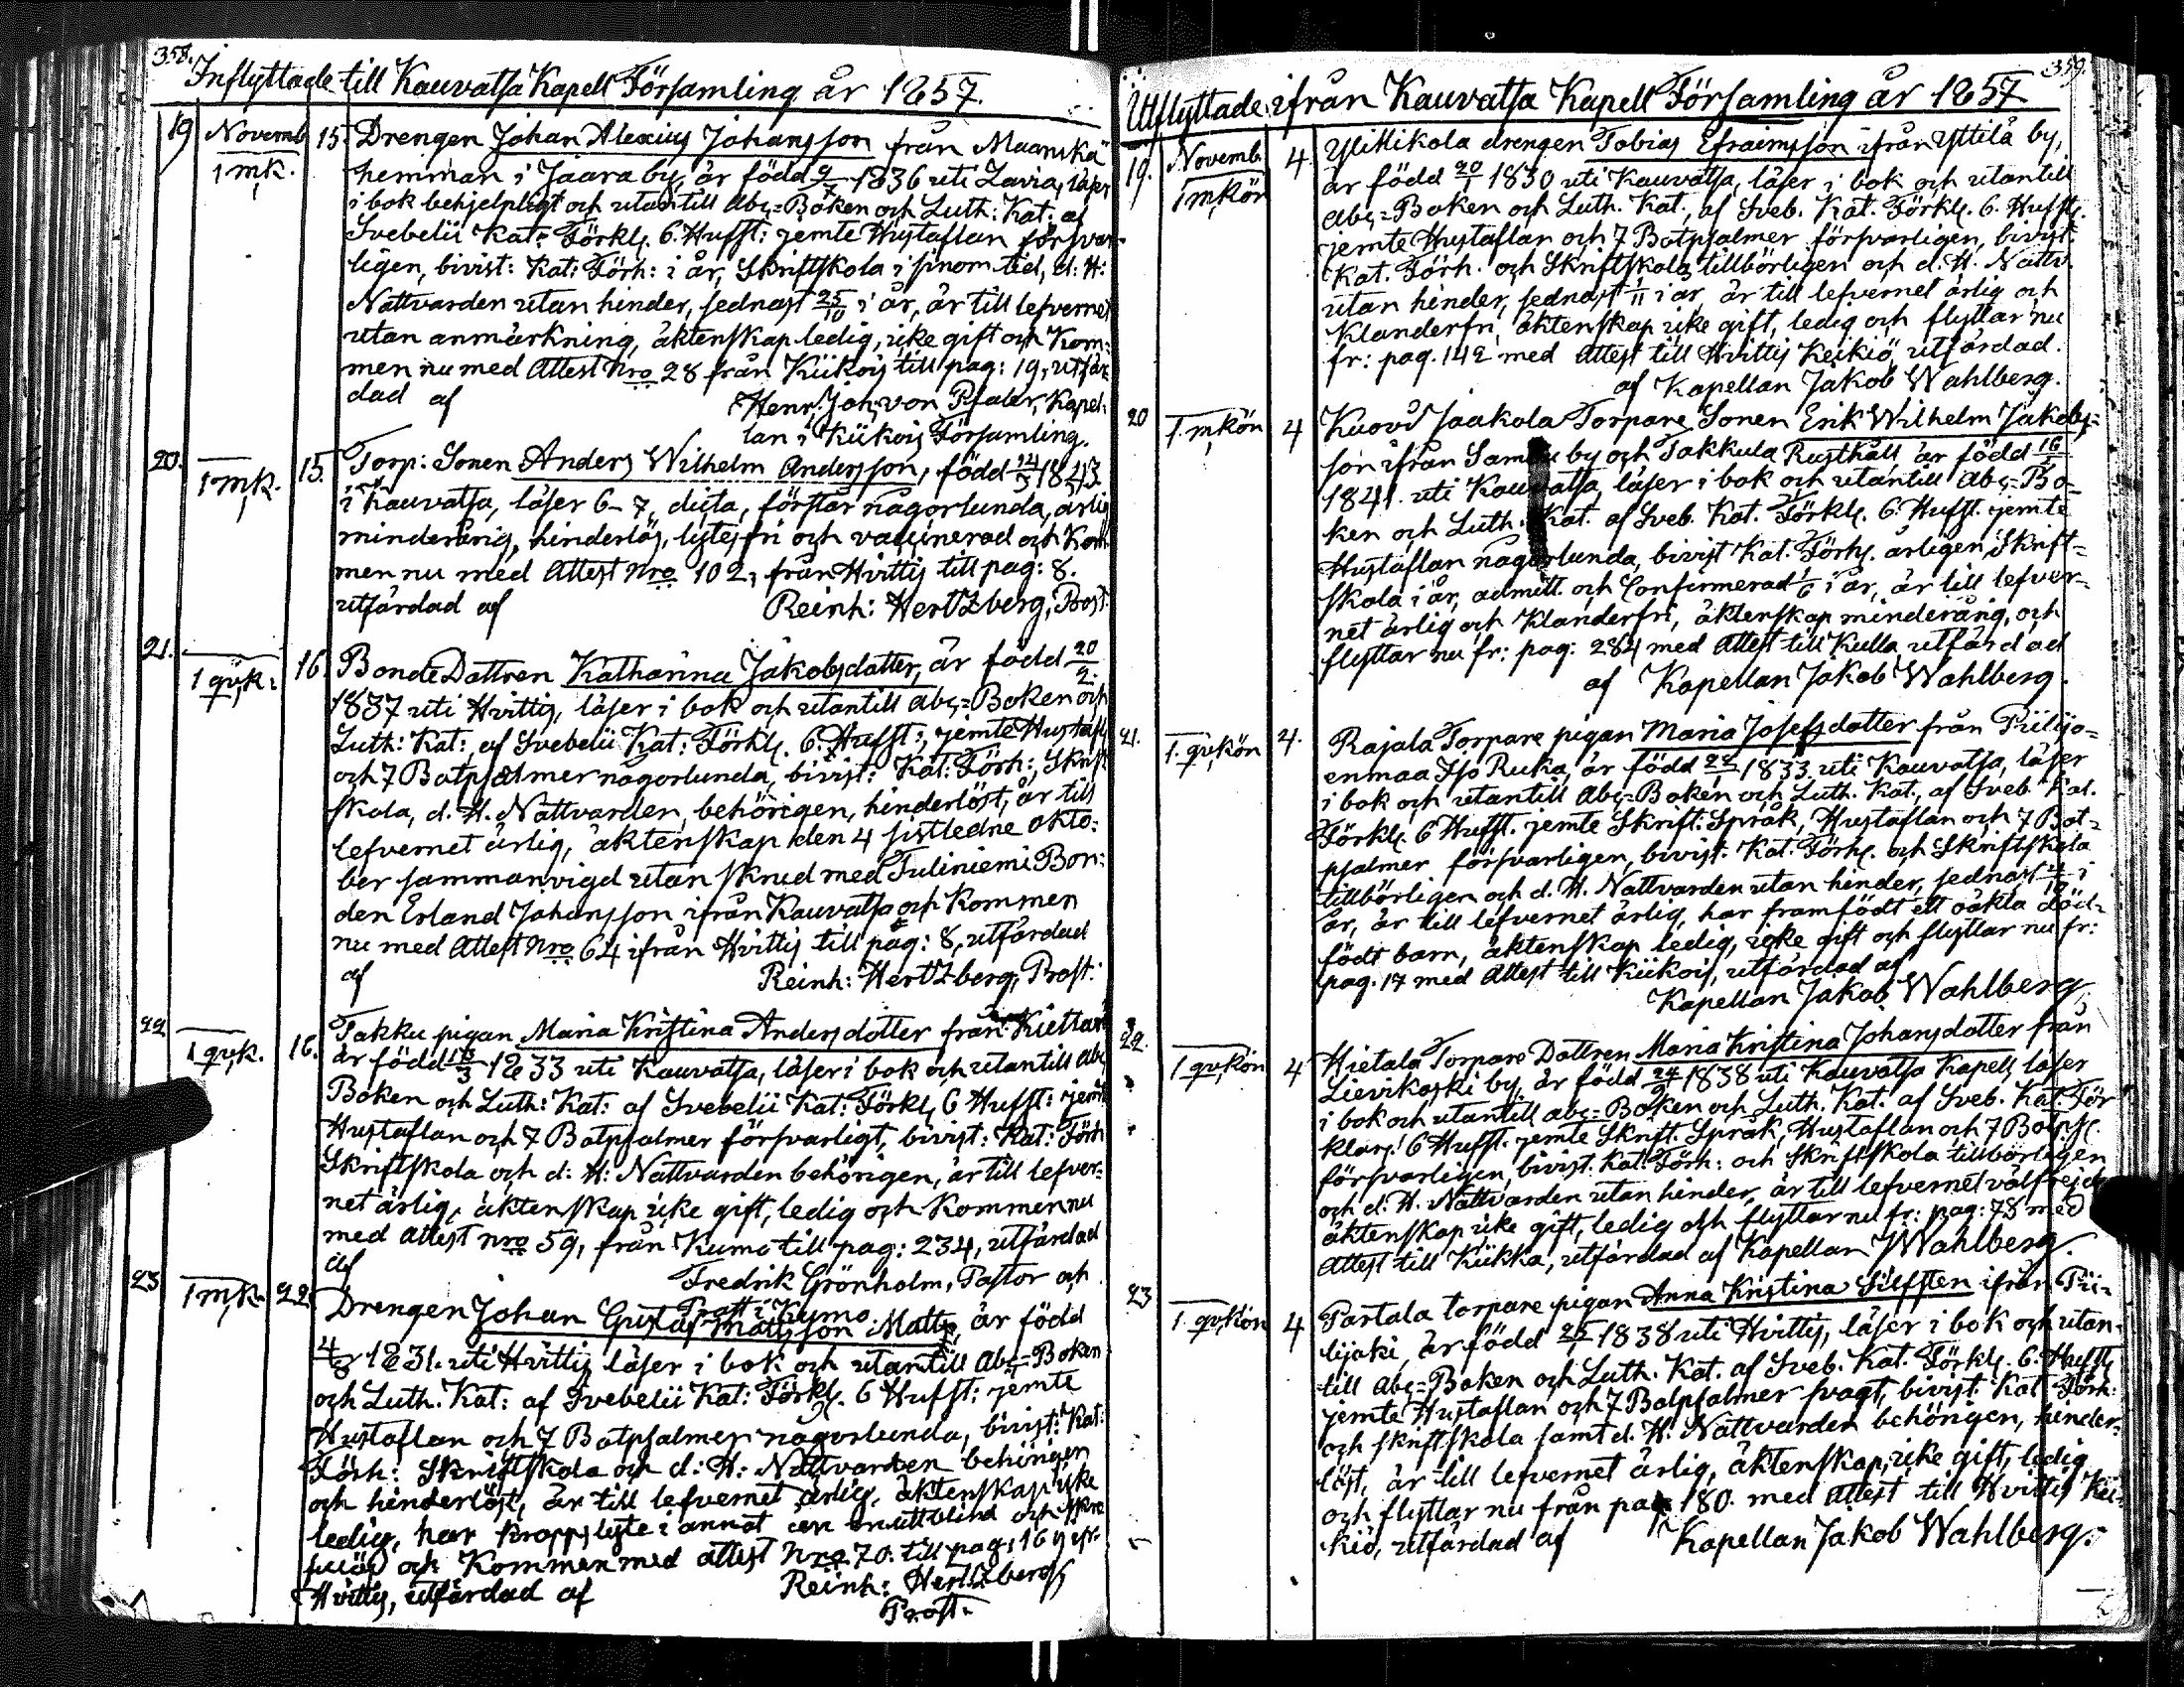 358.
Inflyttade till Kauvatsa Kapell Församling år 1857.
19 Novemb. 15. Drengen Johan Alexius Johansson från Maanskä
1 mk. hemman i Jaara by, är född 9/7 1836 uti Lavia, läser
i bok behjelpligt och utantill Abc=Boken och Luth: Kat: af
Svebelii Kat: Förkl. 6. Hufst: jemte Hustaflan försvar-
ligen, bivist: Kat: Förh: i år, Skriftskola i sinom tid, d: H:
Nattvarden utan hinder, sednast 25/10 i år, är till lefvernet
utan anmärkning, äktenskap ledig, icke gift och Kom-
men nu med Attest Nro 28 från Kiikois till pag: 19, utfär-
dad af Henr. Joh. von Pfaler, Kapel-
lan i Kiikois Församling.
20. 1 mk. 15. Torp: Sonen Anders Wilhelm Andersson, född 1843
i Kauvatsa, läser 6-7, dicta, förstår någorlunda, ärlig
minderårig, hinderlös, lytesfri och vaccinerad och Kom-
men nu med Attest Nro 102, från Hvittis till pag: 8.
utfärdad af Reinh: Hertzberg, Prost.
21. 1 qv.k: 16. Bonde Dottren Katharina Jakobsdotter, är född 20/2
1837 uti Hvittis, läser i bok och utantill Abc=Boken och
Luth: Kat: af Svebelii Kat: Förkl. 6. Hufst:, jemte Hustafl
och 7 Botpsalmer någorlunda, bivist: Kat: Förh:, Skrift
skola, d. H. Nattvarden, behörigen, hinderlöst, är till
lefvernet ärlig, äktenskap den 4 sistledne Okto-
ber sammanvigd utan skrud med Tuliniemi Bon-
den Erland Johansson ifrån Kauvatsa och Kommen
nu med Attest Nro 64 ifrån Hvittis till pag: 8, utfärdad
af Reinh: Hertzberg, Prost.
22 1 qvk. 16. Takku pigan Maria Kristina Andersdotter från Kiettare
är född 13/3 1833 uti Kauvatsa, läser i bok och utantill Abc
Boken och Luth: Kat: af Svebelii Kat: Förkl, 6 Hufst: jemte
Hustaflan och 7 Botpsalmer försvarligt, bivist: Kat: Förh
Skriftskola och d: H: Nattvarden behörigen, är till lefver-
net ärlig, äktenskap icke gift, ledig och Kommen nu
med Attest nro 59, från Kumo till pag: 234, utfärdad
af Fredrik Grönholm, Pastor och
Prost i Kumo
23 1 mk. 22. Drengen Johan Gustaf Mattsson Matts, är född
4/3 1831. uti Hvittis läser i bok och utantill Abc=Boken
och Luth. Kat: af Svebelii Kat: Förkl. 6 Hufst: jemte
Hustaflan och 7 Botpsalmer någorlunda, bivist: Kat:
Förh: Skriftskola och d: H: Nattvarden behörigen
och hinderlöst, är till lefvernet ärlig, äktenskap icke
ledig, har kroppslyte i annat
och Kommen med attest Nro 70. till pag: 169 fr.
Hvittis, utfärdad af Reinh: Hertzberg
Prost.
359.
Utflyttade ifrån Kauvatsa Kapell Församling år 1857
19. Novemb. 4. YliMikola drengen Tobias Efraimsson ifrån Yttilä by,
1 mkön är född 20/1 1830 uti Kauvatsa, läser i bok och utantill
Abc=Boken och Luth. Kat., af Sveb. Kat. Förkl. 6. Hufst.
jemte Hustaflan och 7 Botpsalmer försvarligen, bivist.
Kat. Förh. och Skriftskola tillbörligen och d. H. Nattv.
utan hinder, sednast 1/11 i år, är till lefvernet ärlig och
Klanderfri, äktenskap icke gift, ledig och flyttar nu
fr: pag. 142 med Attest till Hvittis Keikiö, utfärdad.
af Kapellan Jakob Wahlberg.
20 1. mkön 4 Kuovi Jaakola Torpare Sonen Erik Wilhelm Jakobs=
son ifrån Samku by och Takkula Rusthåll, är född
1841. uti Kauvatsa, läser i bok och utantill Abc=Bo=
ken och Luth. Kat. af Sveb. Kat. Förkl. 6. Hufst. jemte
Hustaflan någorlunda, bivist Kat. Förh. ärligen, Skrift=
skola i år, admitt. och Confirmerad 1/6 i år, är till lefver-
net ärlig och Klanderfri, äktenskap minderårig, och
flyttar nu fr: pag: 284 med Attest till Kulla utfärdad
af Kapellan Jakob Wahlberg.
21. 1. qvkön 4. Rajala Torpare pigan Maria Josefsdotter från Piilijo=
enmaa Iso Ruka, är född 1833 uti Kauvatsa, läser
i bok och utantill Abc=Boken och Luth. Kat., af Sveb. Kat.
Förkl. 6 Hufst. jemte Skrift. Språk, Hustaflan och 7 Bot=
psalmer försvarligen, bivist. Kat. Förh. och Skriftskola
tillbörligen och d. H. Nattvarden utan hinder, sednast i
år, är till lefvernet ärlig, har framfödt ett oäkta död=
födt barn, äktenskap ledig, icke gift och flyttar nu fr:
pag. 17 med Attest till Kiikois, utfärdad af
Kapellan Jakob Wahlberg,
22. 1 qvkön 4 Hietala Torpare Dottren Maria Kristina Johansdotter från
Lievikoski by, är född 24/9 1838 uti Kauvatsa Kapell, läser
i bok och utantill abc=Boken och Luth. Kat. af Sveb. Kat. För
klar. 6 Hufst. jemte Skrift. Språk, Hustaflan och 7 Botps.
försvarligen, bivist. Kat. Förh: och Skriftskola tillbörligen
och d. H. Nattvarden utan hinder, är till lefvernet välfrejd.
äktenskap icke gift, ledig och flyttar nu fr: pag: 78 med
Attest till Kiikka, utfärdad af Kapellan J Wahlberg.
23 1. qvkön 4 Partala torpare pigan Anna Kristina Silfsten ifrån Pii=
lijoki, är född 1838 uti Hvittis, läser i bok och utan=
till Abc=Boken och Luth. Kat. af Sveb. Kat. Förkl. 6. Hufst
jemte Hustaflan och 7 Botpsalmer svagt, bivist. Kat Förh:
och skriftskola samt d. H. Nattvarden behörigen, hinder=
löst, är till lefvernet ärlig, äktenskap, icke gift, ledig
och flyttar nu från pag 180. med Attest till Hvittis Kei=
kiö, utfärdad af Kapellan Jakob Wahlberg.